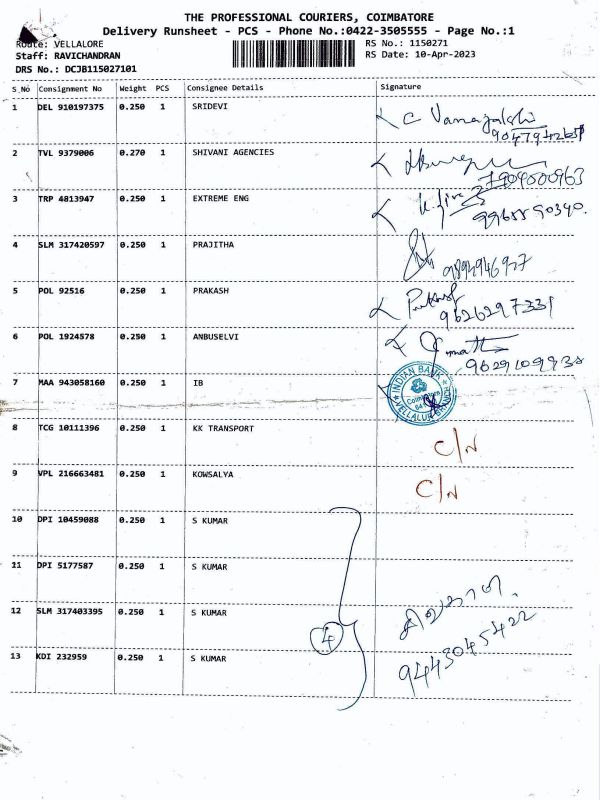 THE PROFESSIONAL COURIERS, COIMBATORE
Delivery Runsheet - PCS - Phone No.:0422-3505555 - Page No.:1
Route: VELLALORE RS No.: 1150271
Staff: RAVICHANDRAN RS Date: 10-Apr-2023
DRS No.: DCJB115027101
S_No Consignment No Weight PCS Consignee Details Signature
1 DEL 910197375 0.250 1 SRIDEVI
2 TVL 9379006 0.270 1 SHIVANI AGENCIES
3 TRP 4813947 0.250 1 EXTREME ENG
4 SLM 317420597 0.250 1 PRAJITHA
5 POL 92516 0.250 1 PRAKASH
9626297331
6 POL 1924578 0.250 1 ANBUSELVI
7 MAA 943058160 0.250 1 IB
INDIAN BANK
VELLALUR
8 TCG 10111396 0.250 1 KK TRANSPORT C/N
9 VPL 216663481 0.250 1 KOWSALYA C/N
10 DPI 10459088 0.250 1 S KUMAR
11 DPI 5177587 0.250 1 S KUMAR
12 SLM 317403395 0.250 1 S KUMAR
4
13 KDI 232959 0.250 1 S KUMAR 9443045422